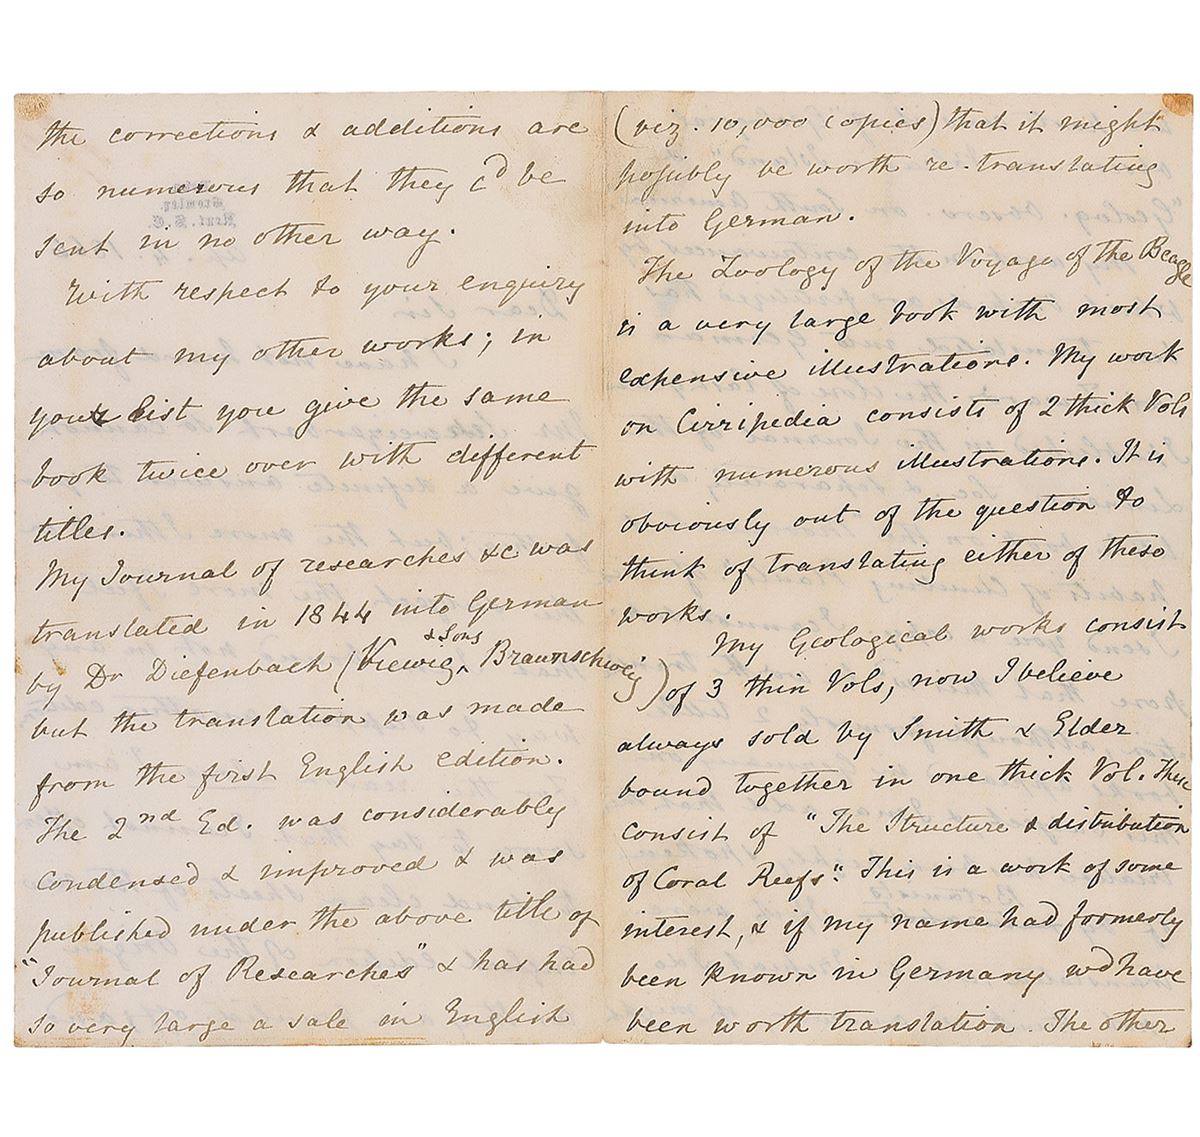 the corrections & additions are
so numerous that they cd be
sent in no other way.
With respect to your enquiry
about my other works; in
your list you give the same
book twice over with different
titles.
My Journal of researches &c was
translated in 1844 into German
by Dr Diefenbach (Viewig & Sons Braunschweig)
but the translation was made
from the first English edition.
The 2nd Ed. was considerably
condensed & improved & was
published under the above title of
"Journal of Researches" & has had
so very large a sale in English
(viz. 10,000 copies) that it might
possibly be worth re-translating
into German.
The Zoology of the Voyage of the Beagle
is a very large book with most
expensive illustrations. My work
on Cirripedia consists of 2 thick Vols
with numerous illustrations. It is
obviously out of the question to
think of translating either of these
works.
My Geological works consist
of 3 thin Vols, now I believe
always sold by Smith & Elder
bound together in one thick Vol. These
consist of "The Structure & distribution
of Coral Reefs". This is a work of some
interest, & if my name had formerly
been known in Germany wd have
been worth translation. The other